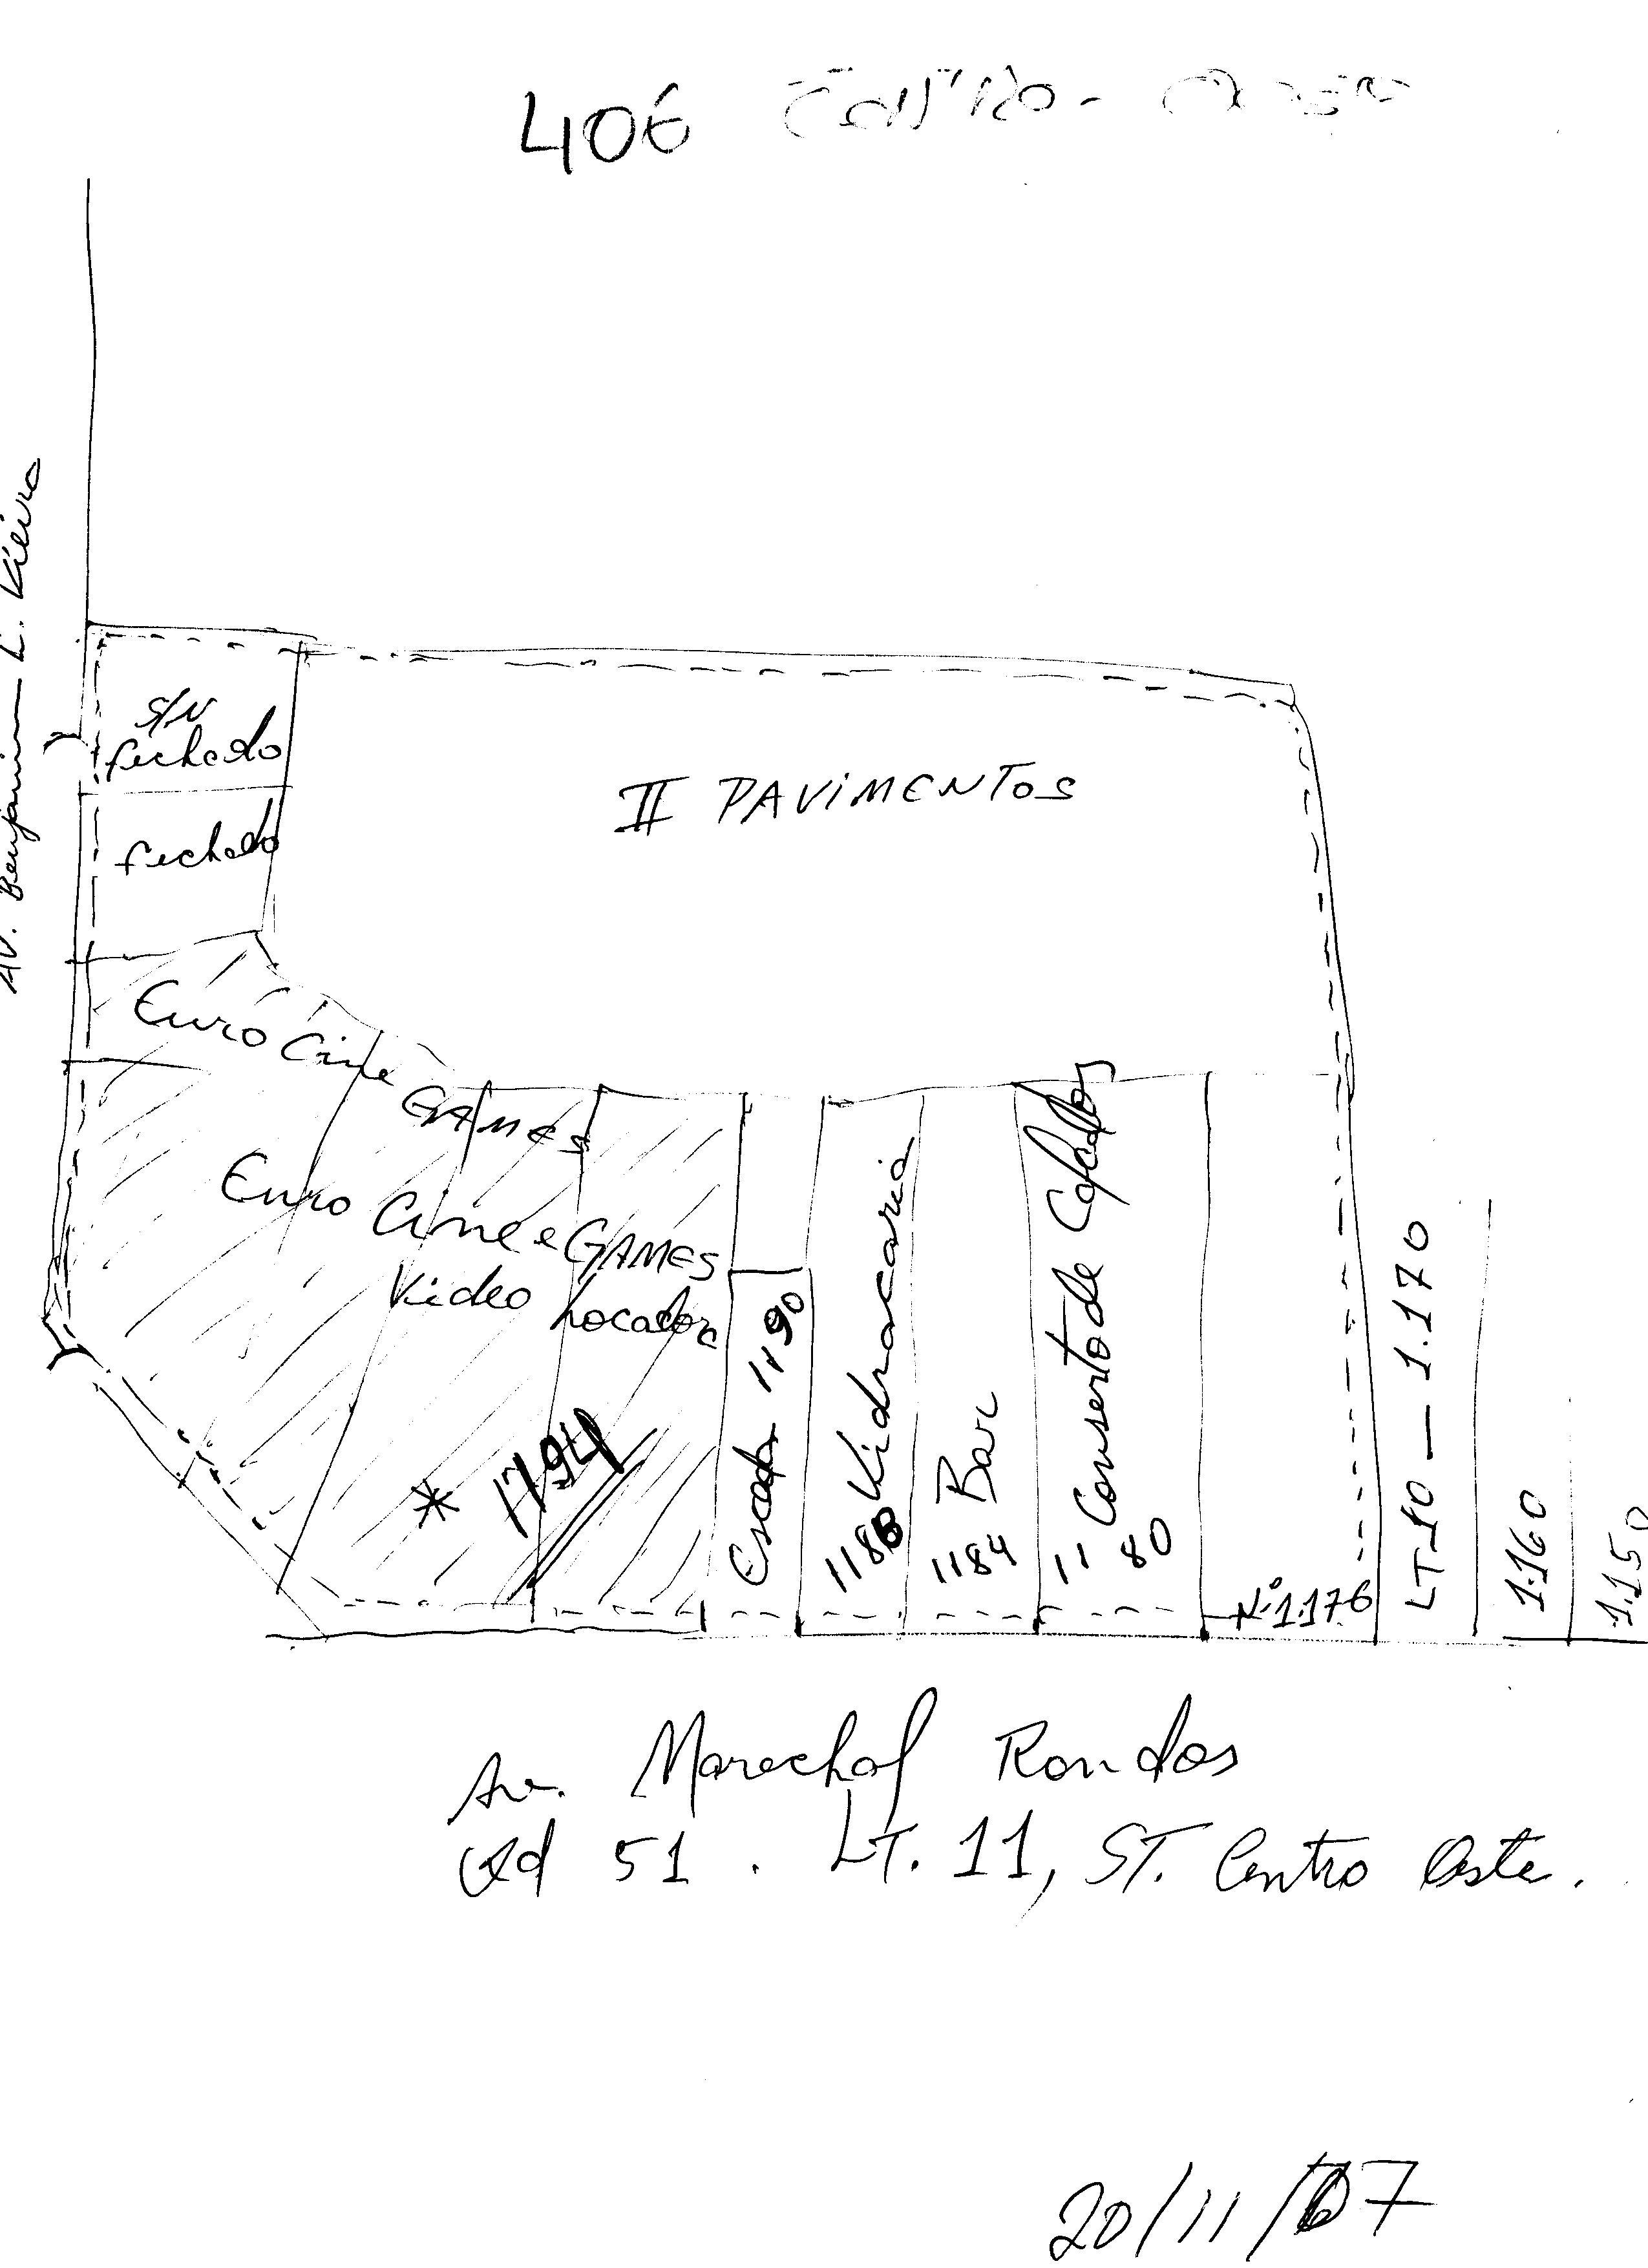 406
Av. Benjamin L. Vieira
S/N
fechado
fechado
II PAVIMENTOS
Euro Cine
GAMES
Euro Cine e GAMES
Video Locadora
* 1794
Escada 1190
1188 Vidracaria
1184 Bar
1180 Conserto de Calçados
Nº 1.176
LT-10 — 1.170
1.160
1.150
Av. Marechal Rondos
Qd 51 . LT. 11, ST. Centro Oeste.
20/11/07